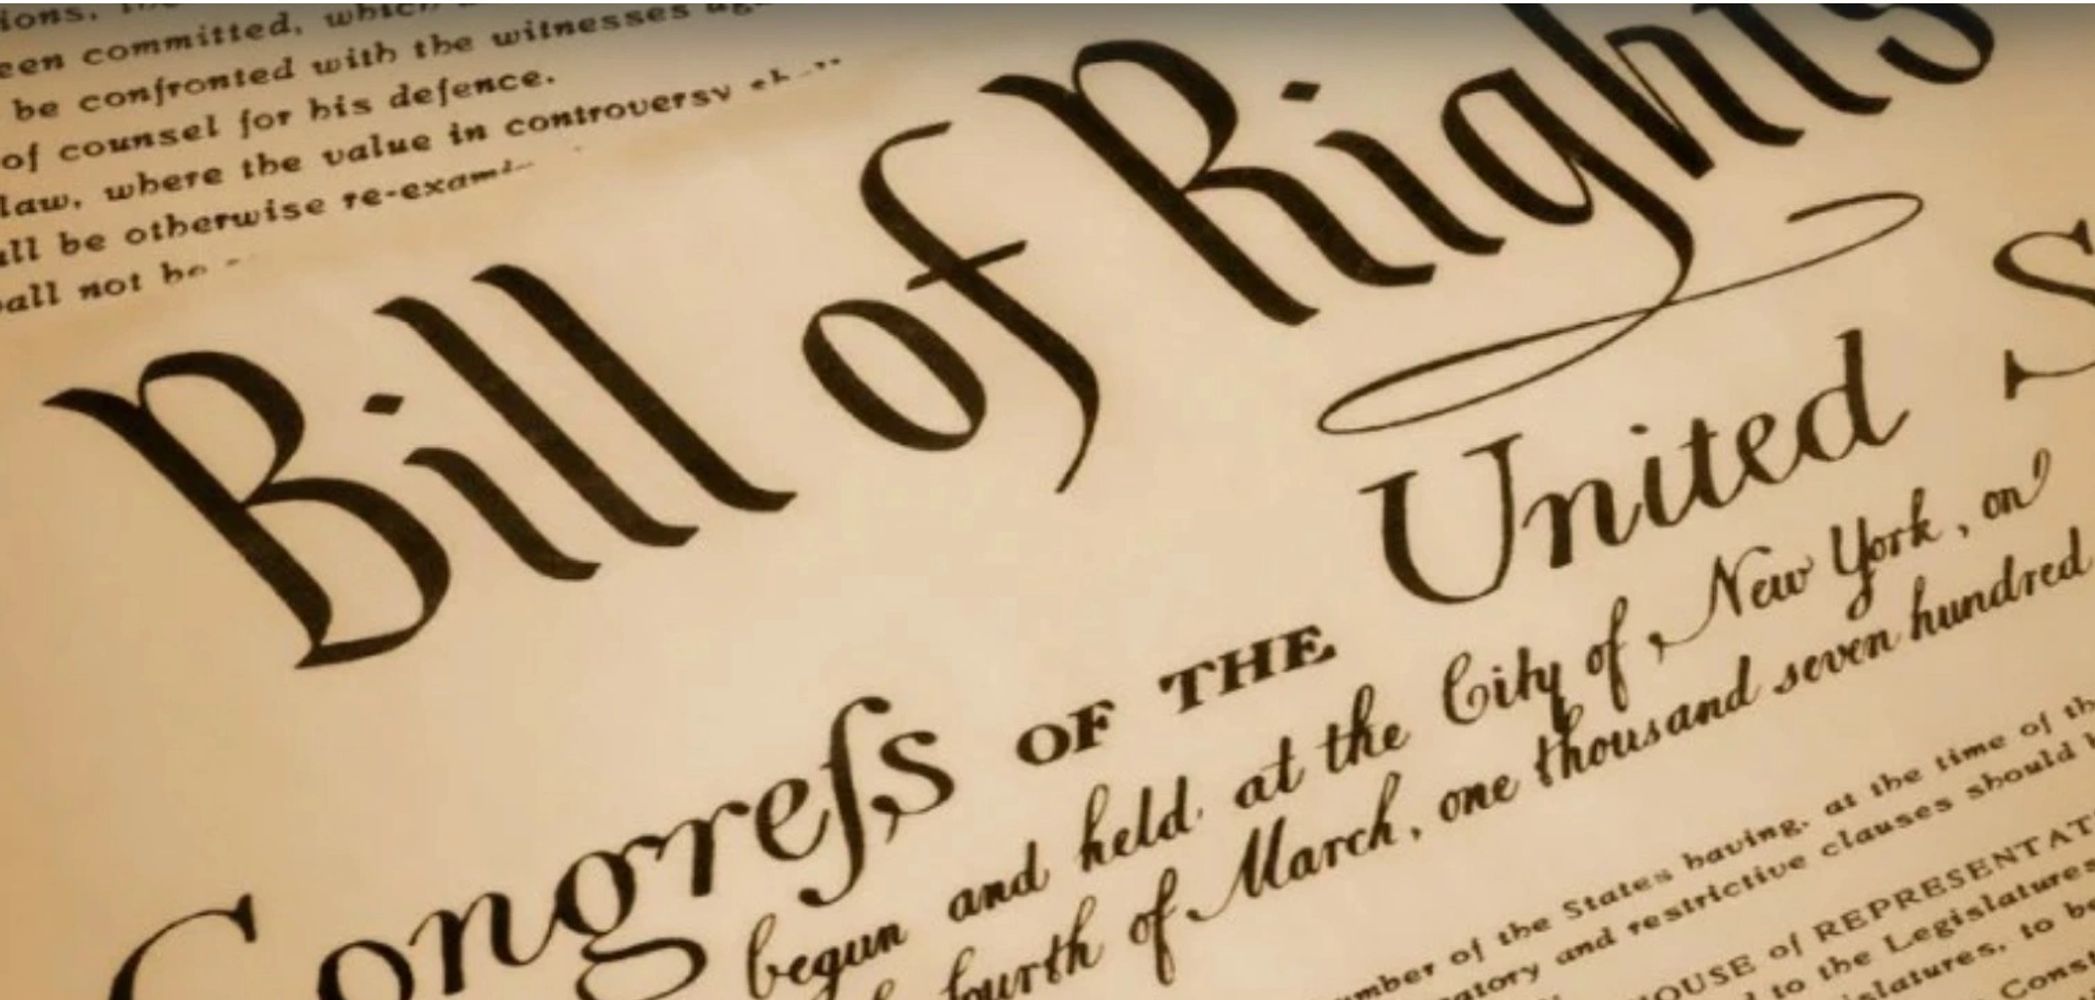 een committed, which
be confronted with the witnesses
of counsel for his defence.
law, where the value in controversy
all be otherwise
all not be
Bill of Rights
Congreſs OF THE United S
begun and held at the City of New York, on
fourth of March, one thousand seven hundred
of the States having, at the time of
and restrictive clauses should
HOUSE of REPRESENTAT
to the Legislatures
to be
Const